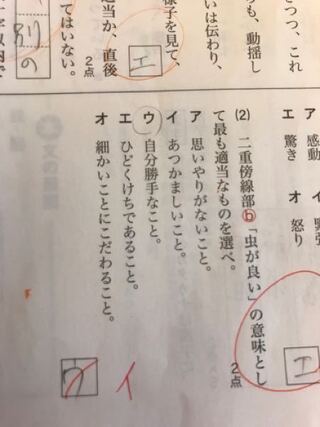 つつ、これ
も、動揺し
いは伝わり、
様子を見て、
エ
当か、直後
2点
てはいない。
別
の
ア 感動
エ 驚き オ 怒り
エ
(2) 二重傍線部ⓑ「虫が良い」の意味とし
て最も適当なものを選べ。 2点
ア 思いやりがないこと。
イ あつかましいこと。
ウ 自分勝手なこと。
エ ひどくけちであること。
オ 細かいことにこだわること。
ウ
イ